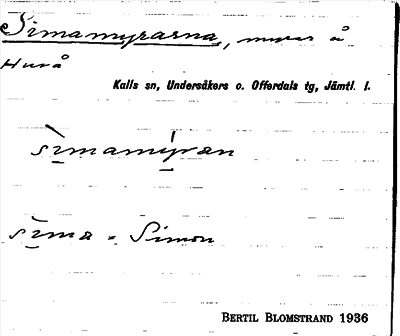 Simamyrarna, myrar å
Huså
Kalls sn, Undersåkers o. Offerdals tg, Jämtl. l.
sìmamýran
sìma = Simon
BERTIL BLOMSTRAND 1936